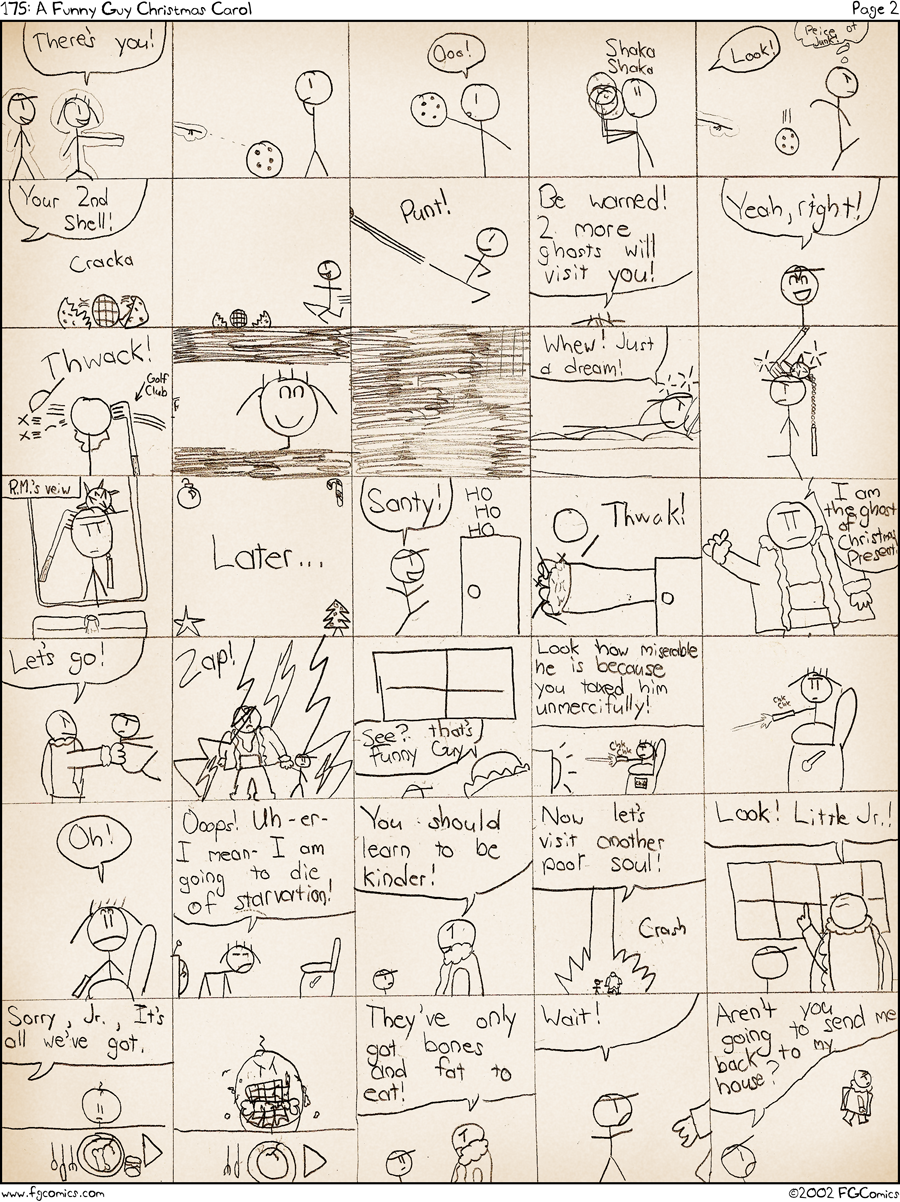 175: A Funny Guy Christmas Carol
Page 2
There's you!
Ooo!
Shaka
Shaka
Look!
Peice of
Junk!
Your 2nd
Shell!
Cracka
Punt!
Be warned!
2 more
ghosts will
visit you!
Yeah, right!
Thwack!
Golf
Club
Whew! Just
a dream!
R.M.'s veiw
Later...
Santy!
HO
HO
HO
Thwak!
I am
the ghost
of
Christmas
Present!
Let's go!
Zap!
See? that's
Funny Guy
Look how miserable
he is because
you taxed him
unmercifully!
Chk
Chk
Chk
Chk
Oh!
Ooops! Uh-er-
I mean- I am
going to die
of starvation!
You should
learn to be
kinder!
Now let's
visit another
poor soul!
Crash
Look! Little Jr.!
Sorry, Jr., It's
all we've got.
They've only
got bones
and fat to
eat!
Wait!
Aren't you
going to send me
back to my
house?
www.fgcomics.com
©2002 FGComics